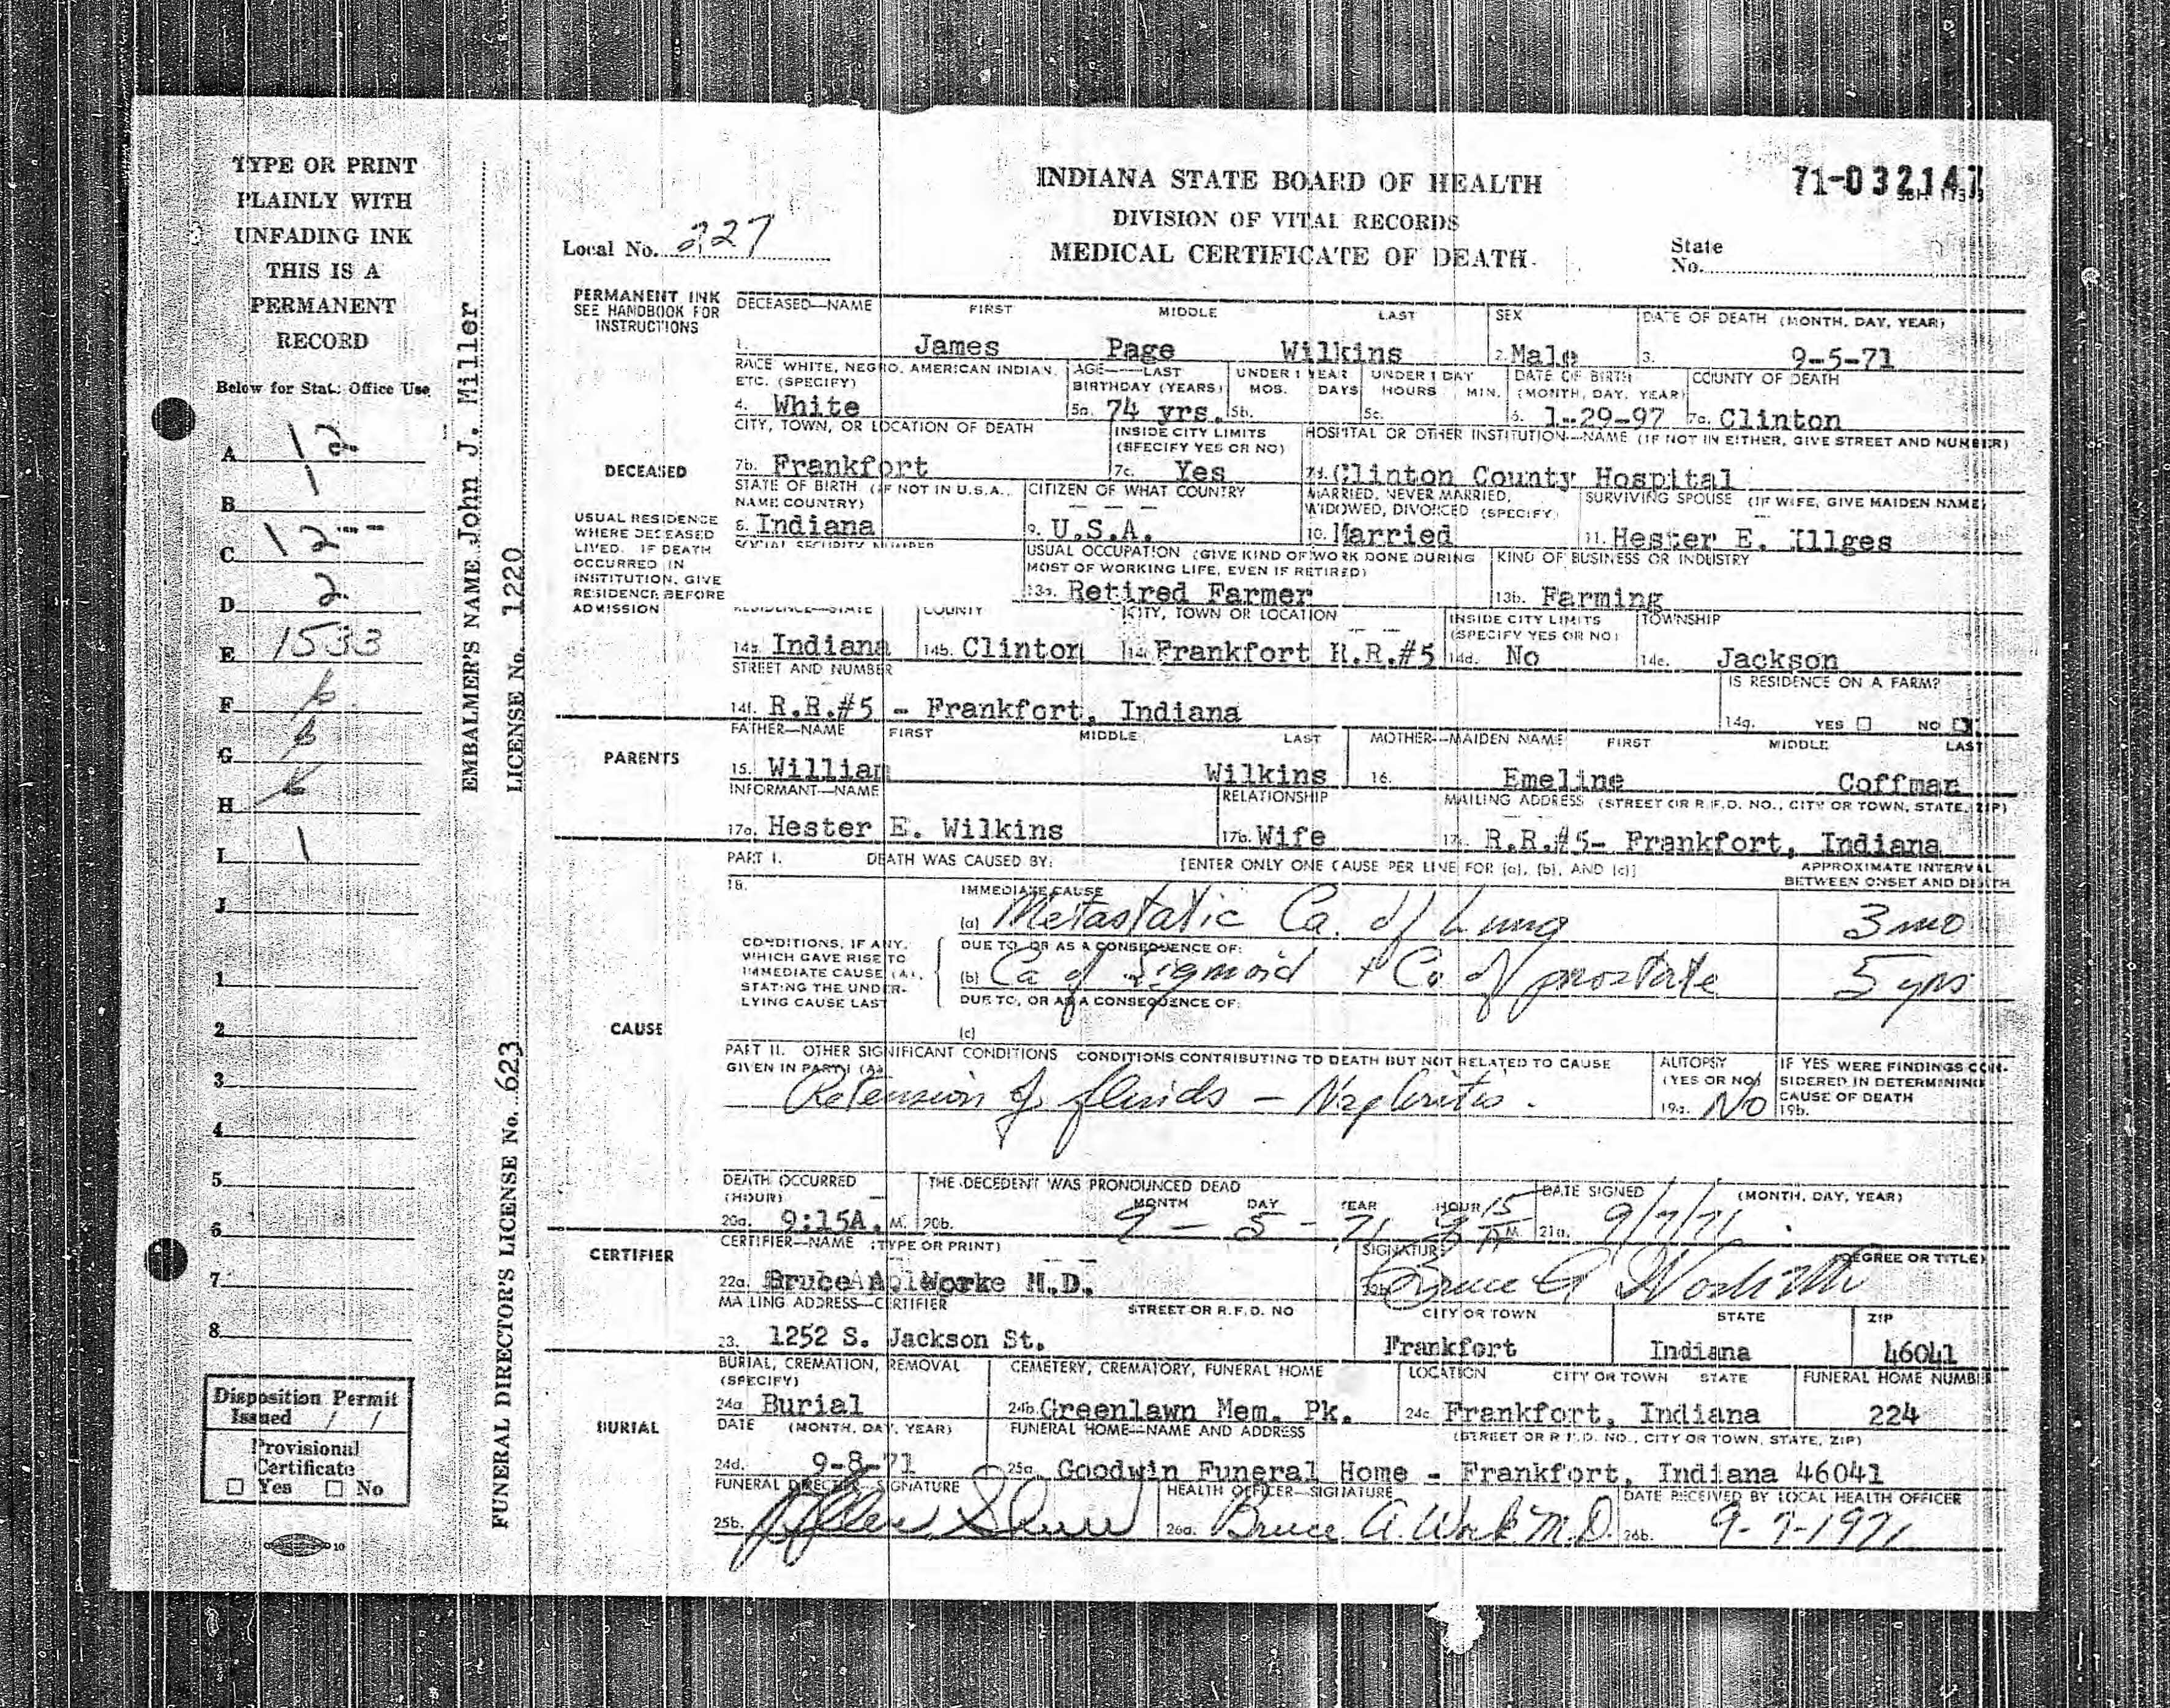 TYPE OR PRINT
PLAINLY WITH
UNFADING INK
THIS IS A
PERMANENT
RECORD
Below for State Office Use
A 12
B 1
C 12--
D 2
E 1533
F 6
G 6
H
I 1
J
1
2
3
4
5
6
7
8
Disposition Permit
Issued / /
Provisional
Certificate
☐ Yes ☐ No
EMBALMER'S NAME John J. Miller
LICENSE No. 1220
FUNERAL DIRECTOR'S LICENSE No. 623
INDIANA STATE BOARD OF HEALTH
71-032147
DIVISION OF VITAL RECORDS
Local No. 227
MEDICAL CERTIFICATE OF DEATH
State
No.
PERMANENT INK
SEE HANDBOOK FOR
INSTRUCTIONS
DECEASED—NAME FIRST MIDDLE LAST SEX DATE OF DEATH (MONTH, DAY, YEAR)
1. James Page Wilkins 2. Male 3. 9-5-71
RACE WHITE, NEGRO, AMERICAN INDIAN, ETC. (SPECIFY) AGE—LAST BIRTHDAY (YEARS) UNDER 1 YEAR MOS. DAYS UNDER 1 DAY HOURS MIN. DATE OF BIRTH (MONTH, DAY, YEAR) COUNTY OF DEATH
4. White 5a. 74 yrs. 5b. 5c. 6. 1-29-97 7a. Clinton
CITY, TOWN, OR LOCATION OF DEATH INSIDE CITY LIMITS (SPECIFY YES OR NO) HOSPITAL OR OTHER INSTITUTION—NAME (IF NOT IN EITHER, GIVE STREET AND NUMBER)
DECEASED
7b. Frankfort 7c. Yes 7d. Clinton County Hospital
STATE OF BIRTH (IF NOT IN U.S.A., NAME COUNTRY) CITIZEN OF WHAT COUNTRY MARRIED, NEVER MARRIED, WIDOWED, DIVORCED (SPECIFY) SURVIVING SPOUSE (IF WIFE, GIVE MAIDEN NAME)
8. Indiana 9. U.S.A. 10. Married 11. Hester E. Illges
USUAL RESIDENCE
WHERE DECEASED
LIVED. IF DEATH
OCCURRED IN
INSTITUTION, GIVE
RESIDENCE BEFORE
ADMISSION
SOCIAL SECURITY NUMBER USUAL OCCUPATION (GIVE KIND OF WORK DONE DURING MOST OF WORKING LIFE, EVEN IF RETIRED) KIND OF BUSINESS OR INDUSTRY
13a. Retired Farmer 13b. Farming
RESIDENCE—STATE COUNTY CITY, TOWN OR LOCATION INSIDE CITY LIMITS (SPECIFY YES OR NO) TOWNSHIP
14a. Indiana 14b. Clinton 14c. Frankfort R.R.#5 14d. No 14e. Jackson
STREET AND NUMBER IS RESIDENCE ON A FARM?
14f. R.R.#5 - Frankfort, Indiana 14g. YES ☐ NO ☒
PARENTS
FATHER—NAME FIRST MIDDLE LAST MOTHER—MAIDEN NAME FIRST MIDDLE LAST
15. William Wilkins 16. Emeline Coffman
INFORMANT—NAME RELATIONSHIP MAILING ADDRESS (STREET OR R.F.D. NO., CITY OR TOWN, STATE, ZIP)
17a. Hester E. Wilkins 17b. Wife 17c. R.R.#5- Frankfort, Indiana
PART I. DEATH WAS CAUSED BY: [ENTER ONLY ONE CAUSE PER LINE FOR (a), (b), AND (c)] APPROXIMATE INTERVAL BETWEEN ONSET AND DEATH
18. IMMEDIATE CAUSE
(a) Metastatic Ca. of Lung 3 mo
CONDITIONS, IF ANY,
WHICH GAVE RISE TO
IMMEDIATE CAUSE (A),
STATING THE UNDER-
LYING CAUSE LAST
DUE TO, OR AS A CONSEQUENCE OF:
(b) Ca of Sigmoid + Ca of prostate 5 yrs
DUE TO, OR AS A CONSEQUENCE OF:
(c)
CAUSE
PART II. OTHER SIGNIFICANT CONDITIONS CONDITIONS CONTRIBUTING TO DEATH BUT NOT RELATED TO CAUSE GIVEN IN PART I (A) AUTOPSY (YES OR NO) IF YES WERE FINDINGS CONSIDERED IN DETERMINING CAUSE OF DEATH
Retension of fluids - Nephritis. 19a. NO 19b.
DEATH OCCURRED (HOUR) THE DECEDENT WAS PRONOUNCED DEAD MONTH DAY YEAR HOUR DATE SIGNED (MONTH, DAY, YEAR)
20a. 9:15A. M. 20b. 9 - 5 - 71 9 15 M. 21a. 9/7/71
CERTIFIER
CERTIFIER—NAME (TYPE OR PRINT) SIGNATURE (DEGREE OR TITLE)
22a. Bruce A. Worke M.D. 22b. Bruce A
MAILING ADDRESS—CERTIFIER STREET OR R.F.D. NO CITY OR TOWN STATE ZIP
23. 1252 S. Jackson St. Frankfort Indiana 46041
BURIAL, CREMATION, REMOVAL (SPECIFY) CEMETERY, CREMATORY, FUNERAL HOME LOCATION CITY OR TOWN STATE FUNERAL HOME NUMBER
24a. Burial 24b. Greenlawn Mem. Pk. 24c. Frankfort, Indiana 224
BURIAL
DATE (MONTH, DAY, YEAR) FUNERAL HOME—NAME AND ADDRESS (STREET OR R.F.D. NO., CITY OR TOWN, STATE, ZIP)
24d. 9-8-71 25a. Goodwin Funeral Home - Frankfort, Indiana 46041
FUNERAL DIRECTOR—SIGNATURE HEALTH OFFICER—SIGNATURE DATE RECEIVED BY LOCAL HEALTH OFFICER
25b. 26a. Bruce A. Work M.D. 26b. 9-7-1971